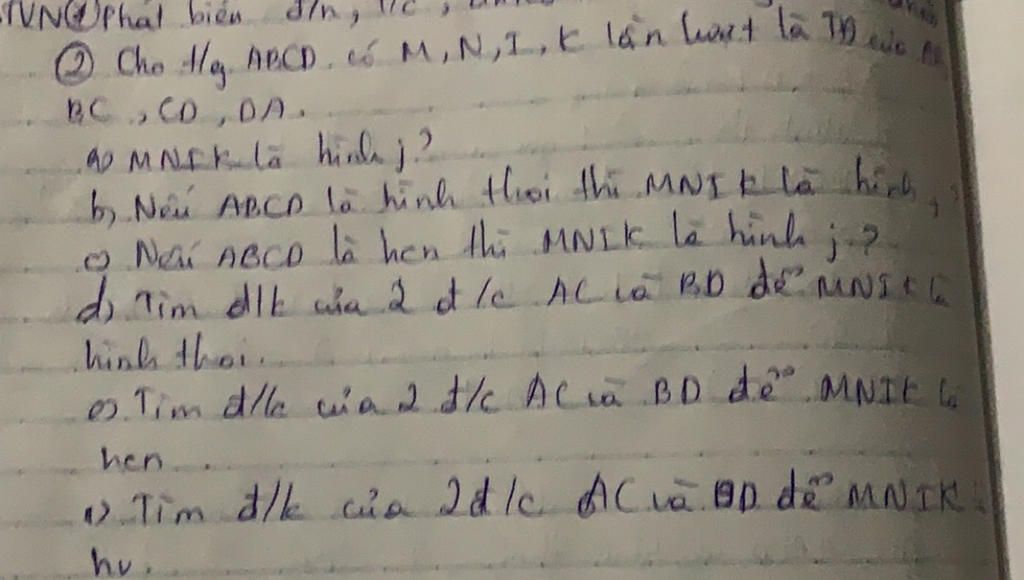 TVN ① Phát biểu đ/n, t/c,
② Cho t/g ABCD có M, N, I, K lần lượt là TĐ của
BC, CD, DA.
a) MNIK là hình j?
b) Nếu ABCD là hình thoi thì MNIK là hình
c) Nếu ABCD là hcn thì MNIK là hình j?
d) Tìm đ/k của 2 đ/c AC và BD để MNIK là
hình thoi.
e) Tìm đ/k của 2 đ/c AC và BD để MNIK là
hcn.
Tìm đ/k của 2 đ/c AC và BD để MNIK
hv.